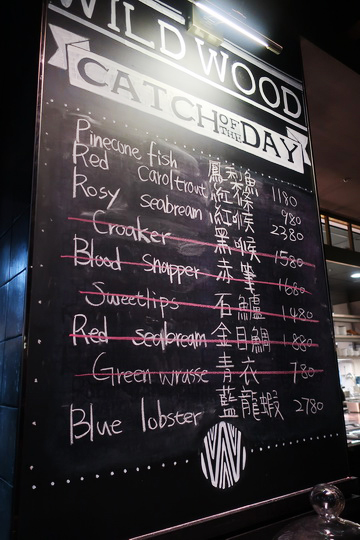 WILD WOOD
CATCH OF THE DAY
Pinecone fish 鳳梨魚 1180
Red Coraltrout 紅條 980
Rosy seabream 紅喉 2380
Croaker 黑喉 1580
Blood Snapper 赤筆 1680
Sweetlips 石鱸 1480
Red seabream 金目鯛 1880
Green wrasse 青衣 780
Blue lobster 藍龍蝦 2780